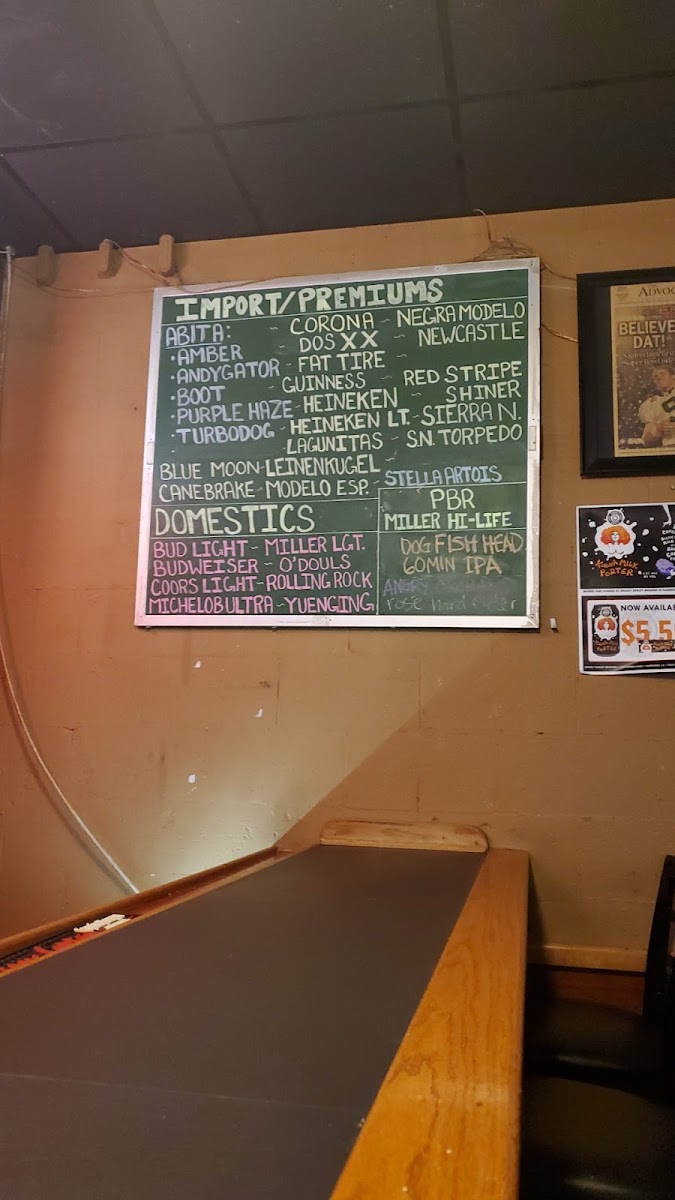 IMPORT/PREMIUMS
ABITA: ~ CORONA ~ NEGRA MODELO
DOS XX ~ NEWCASTLE
• AMBER
• ANDYGATOR - FAT TIRE ~
• BOOT ~ GUINNESS ~ RED STRIPE
• PURPLE HAZE - HEINEKEN ~ SHINER
• TURBODOG - HEINEKEN LT. - SIERRA N.
LAGUNITAS ~ SN. TORPEDO
BLUE MOON - LEINENKUGEL ~
CANEBRAKE - MODELO ESP. - STELLA ARTOIS
PBR
MILLER HI-LIFE
DOG FISH HEAD
60 MIN IPA
ANGRY
rose hard cider
DOMESTICS
BUD LIGHT - MILLER LGT.
BUDWEISER - O'DOULS
COORS LIGHT - ROLLING ROCK
MICHELOB ULTRA - YUENGING
ADVOC
BELIEVE
DAT!
MILK
PORTER
NOW AVAILA
$5.5